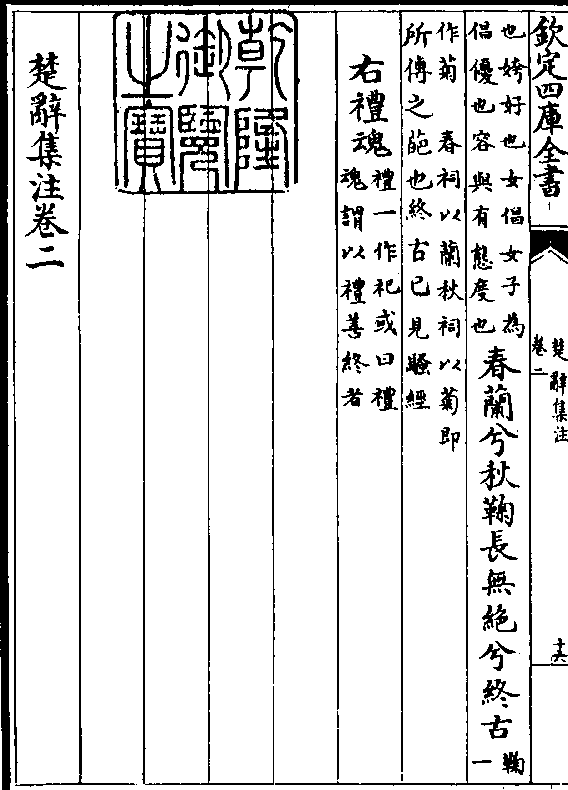 欽定四庫全書
楚辭集注
卷二
十六
也姱好也女倡女子為
倡優也容與有態度也
春蘭兮秋鞠長無絶兮終古
鞠
一
作菊　春祠以蘭秋祠以菊即
所傳之葩也終古已見騷經
右禮魂
禮一作祀或曰禮
魂謂以禮善終者
乾隆
御覽
之寶
楚辭集注卷二